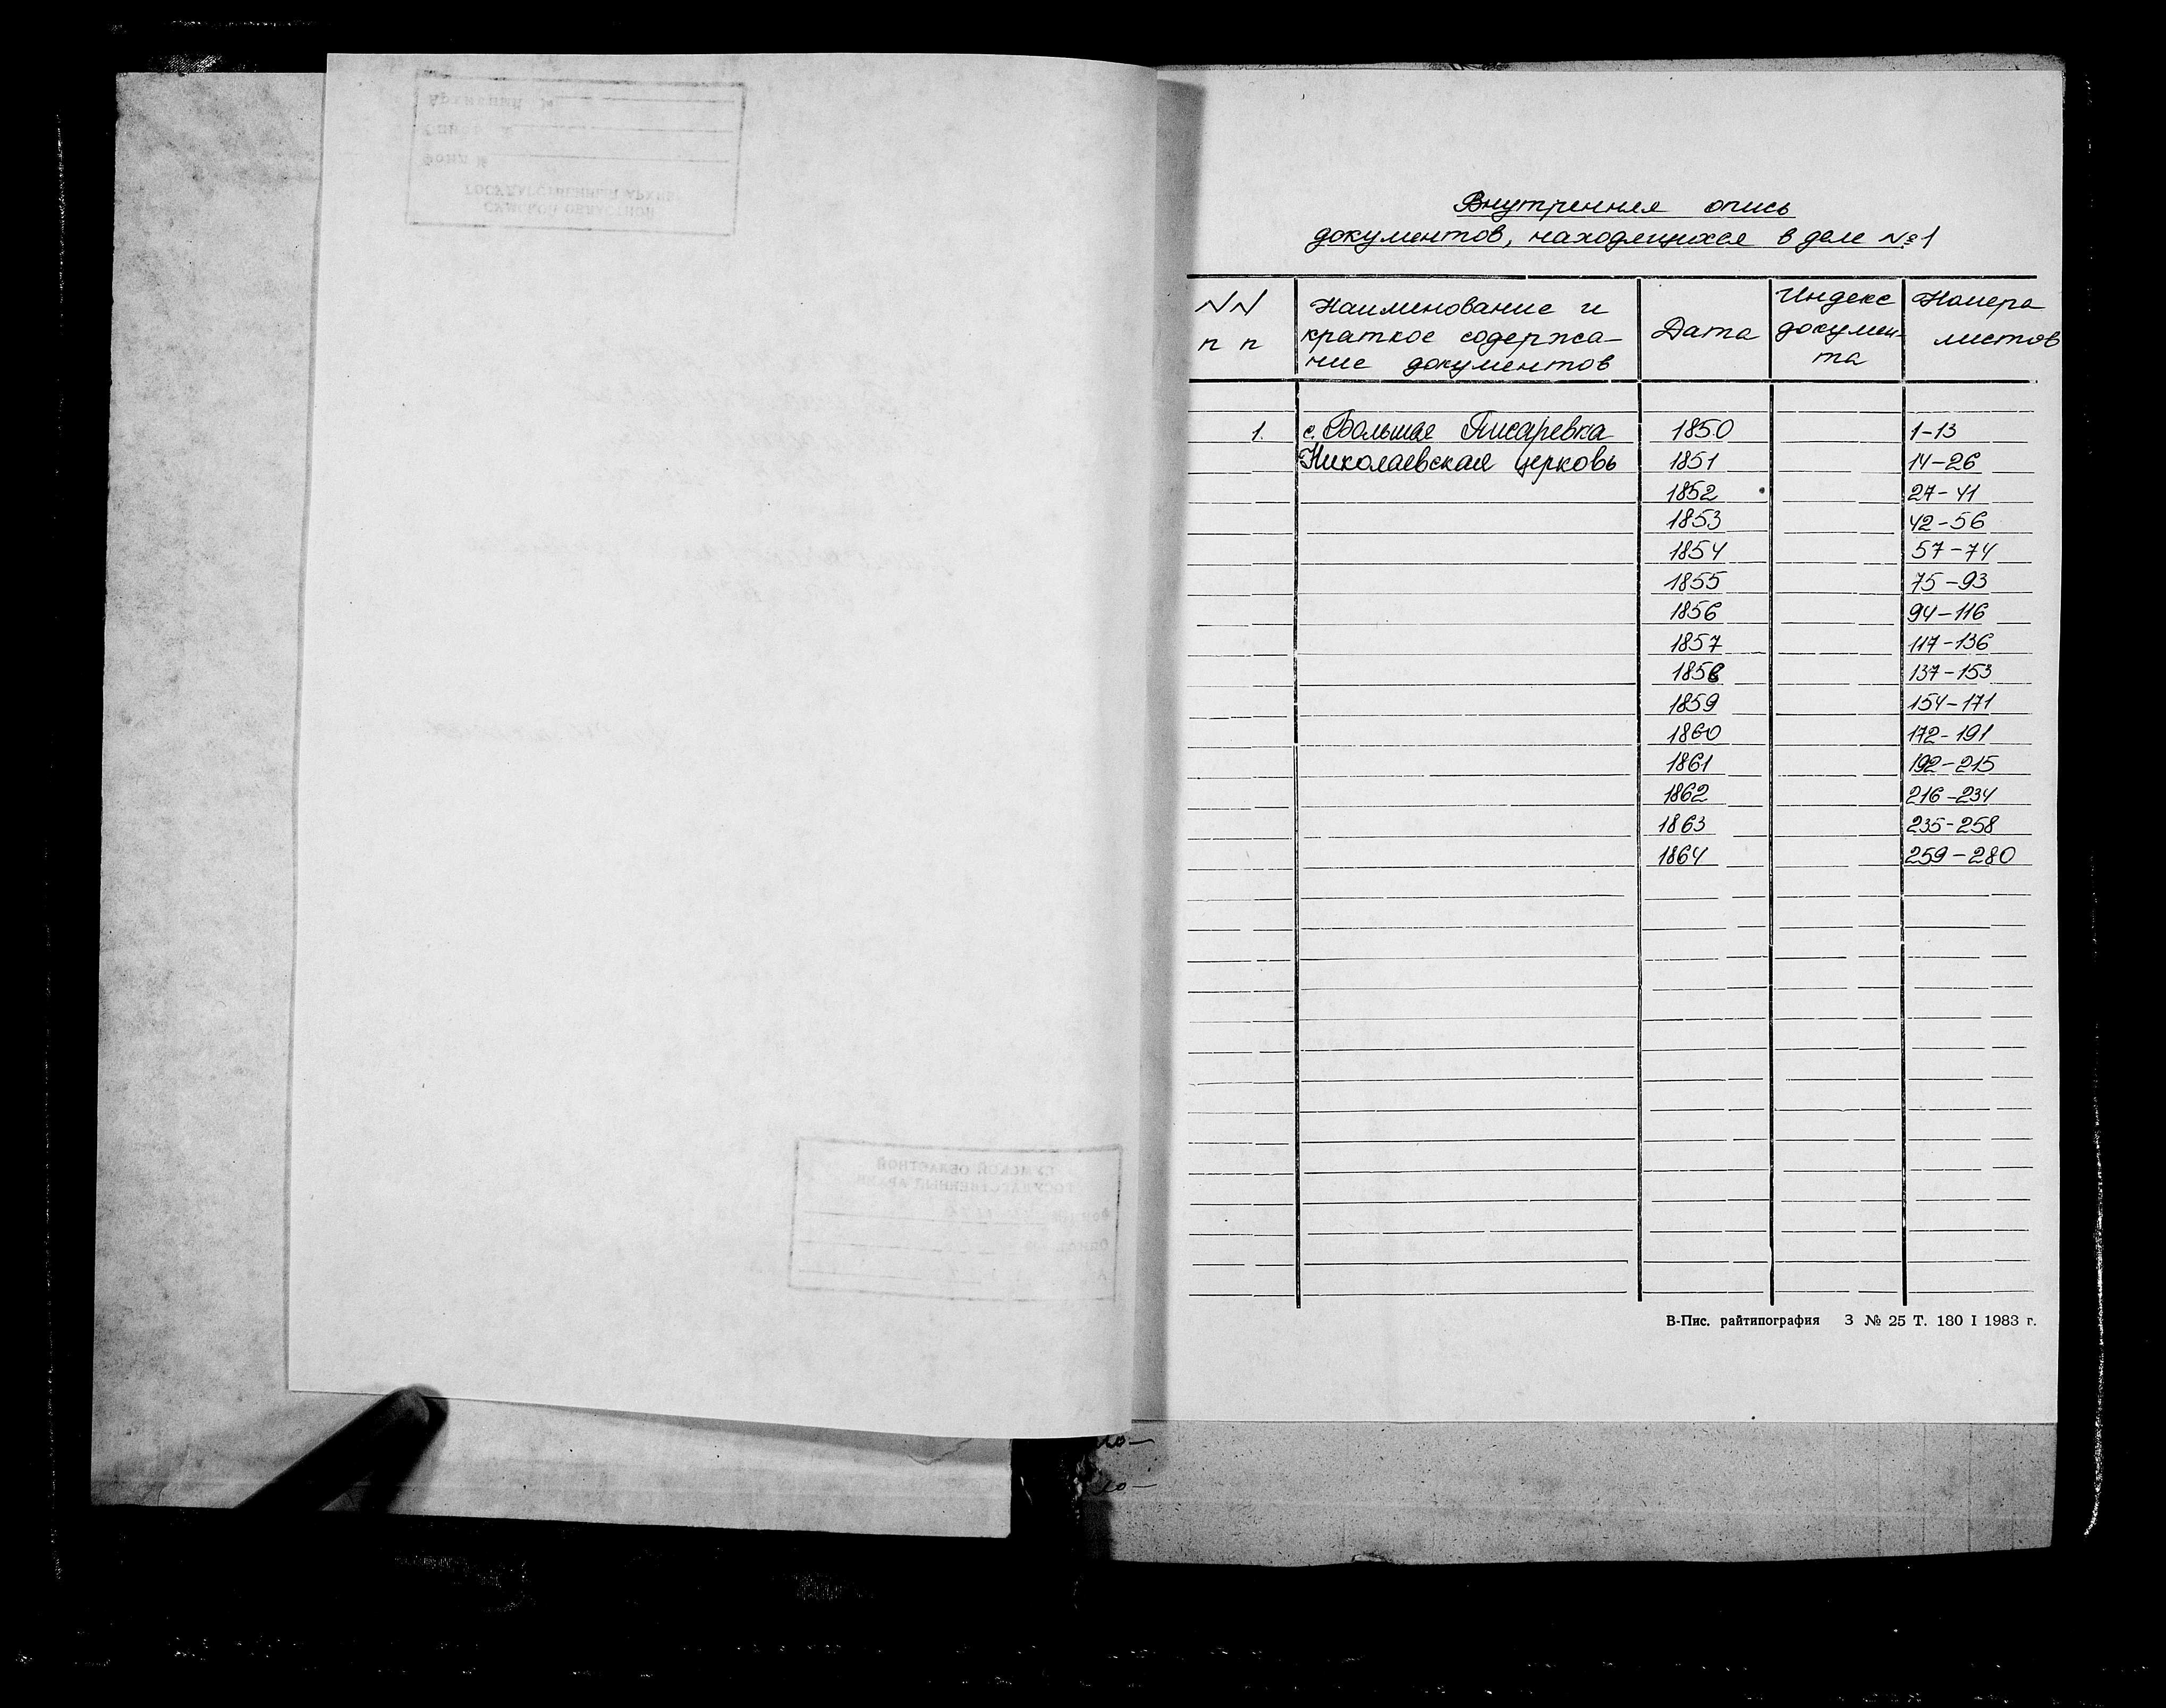 СУМСКОЙ ОБЛАСТНОЙ
ГОСУДАРСТВЕННЫЙ АРХИВ
Фонд №
Опись №
Архивный №
СУМСКОЙ ОБЛАСТНОЙ
ГОСУДАРСТВЕННЫЙ АРХИВ
Внутренняя опись
документов, находящихся в деле №1
NN п п | Наименование и краткое содержание документов | Дата | Индекс докумен-та | Номера листов
1. с. Большая Писаревка 1850 1-13
Николаевская церковь 1851 14-26
1852 27-41
1853 42-56
1854 57-74
1855 75-93
1856 94-116
1857 117-136
1858 137-153
1859 154-171
1860 172-191
1861 192-215
1862 216-234
1863 235-258
1864 259-280
В-Пис. райтипография 3 № 25 Т. 180 I 1983 г.